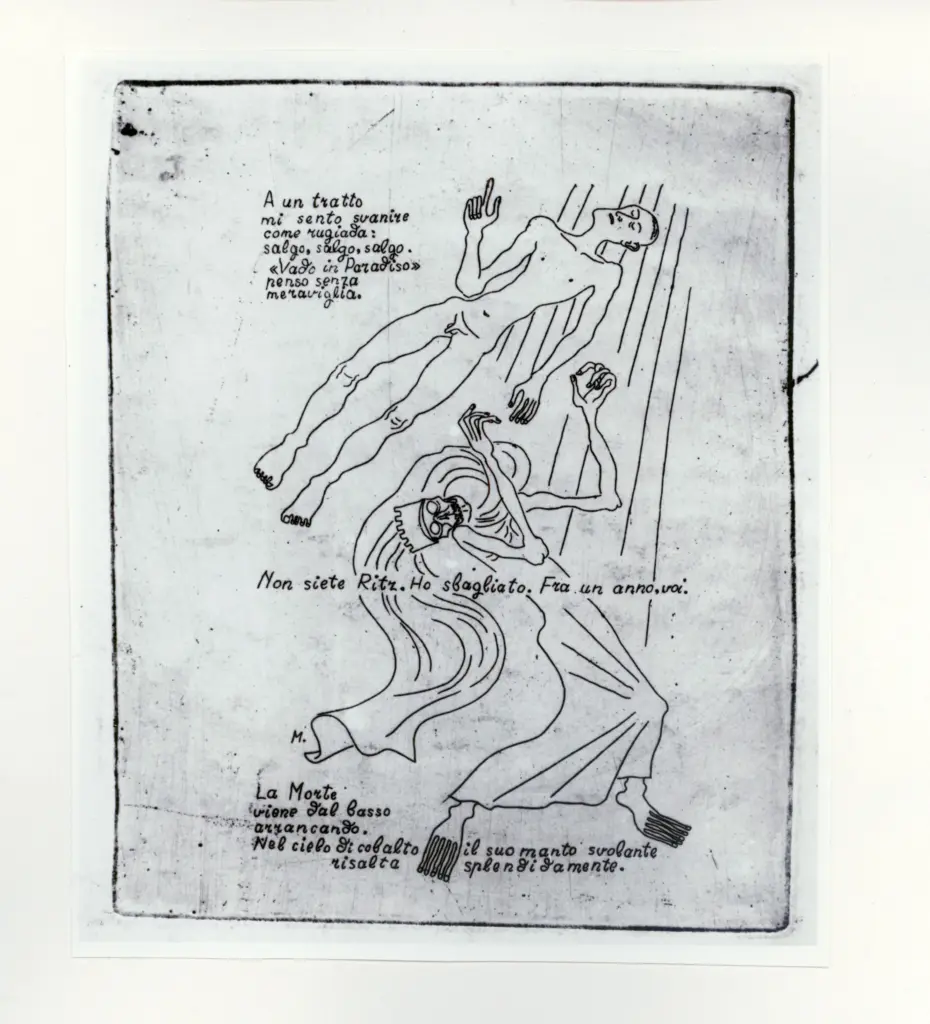 A un tratto
mi sento svanire
come rugiada:
salgo, salgo, salgo.
«Vado in Paradiso»
penso senza
meraviglia.
Non siete Ritz. Ho sbagliato. Fra un anno, voi.
M.
La Morte
viene dal basso
arrancando.
Nel cielo di cobalto il suo manto svolante
risalta splendidamente.